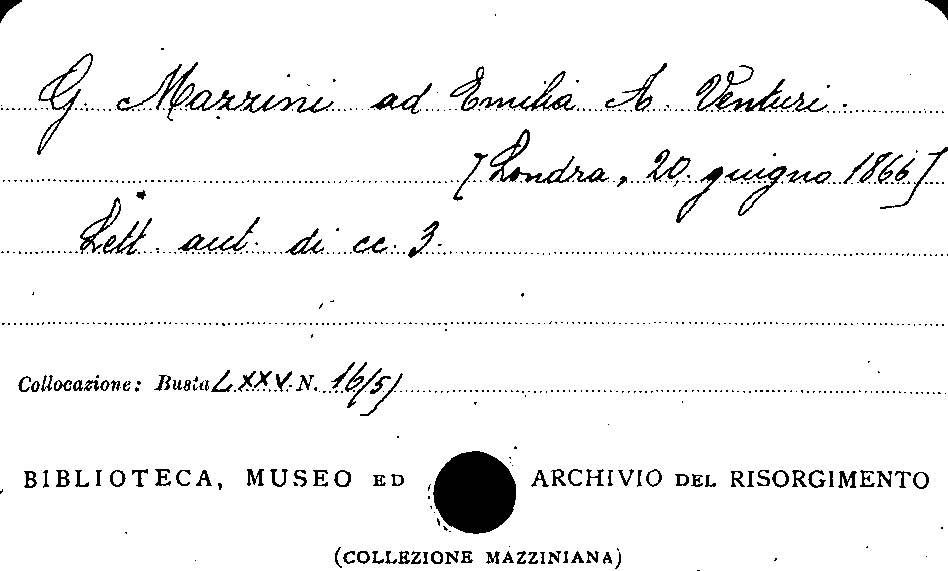 G. Mazzini ad Emilia A. Venturi.
[Londra, 20. giugno 1866]
Lett. aut. di cc. 3.
Collocazione: Busta LXXV. N. 16/5)
BIBLIOTECA, MUSEO ED ARCHIVIO DEL RISORGIMENTO
(COLLEZIONE MAZZINIANA)